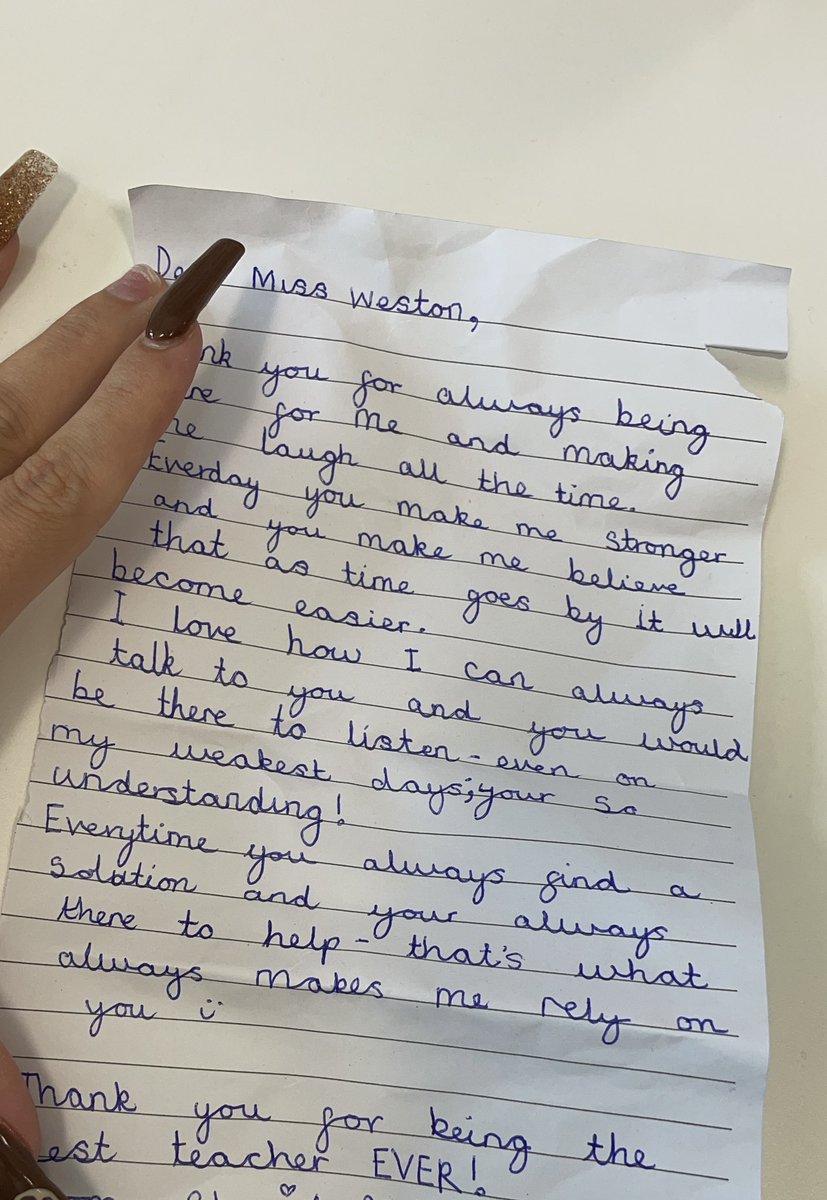 Miss Weston,
you for always being
for me and making
laugh all the time.
Everday you make me stronger
and you make me believe
that as time goes by it will
become easier.
I love how I can always
talk to you and you would
be there to listen - even on
my weakest days; your so
understanding!
Everytime you always find a
solation and your always
there to help - that's what
always makes me rely on
you :)
Thank you for being the
est teacher EVER!